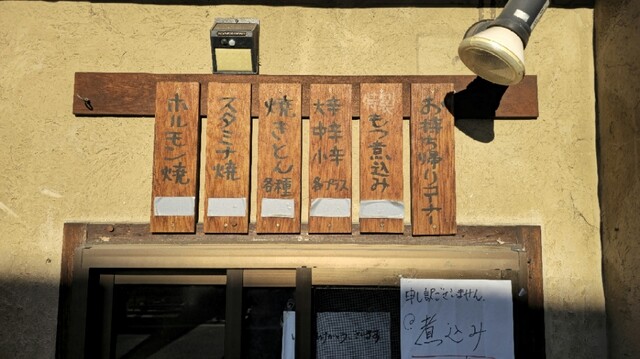 お持ち帰りコーナー
もつ煮込み
大辛
中辛
小辛
各プラス
焼きとん
各種
スタミナ焼
ホルモン焼
申し訳ございません。
煮込み